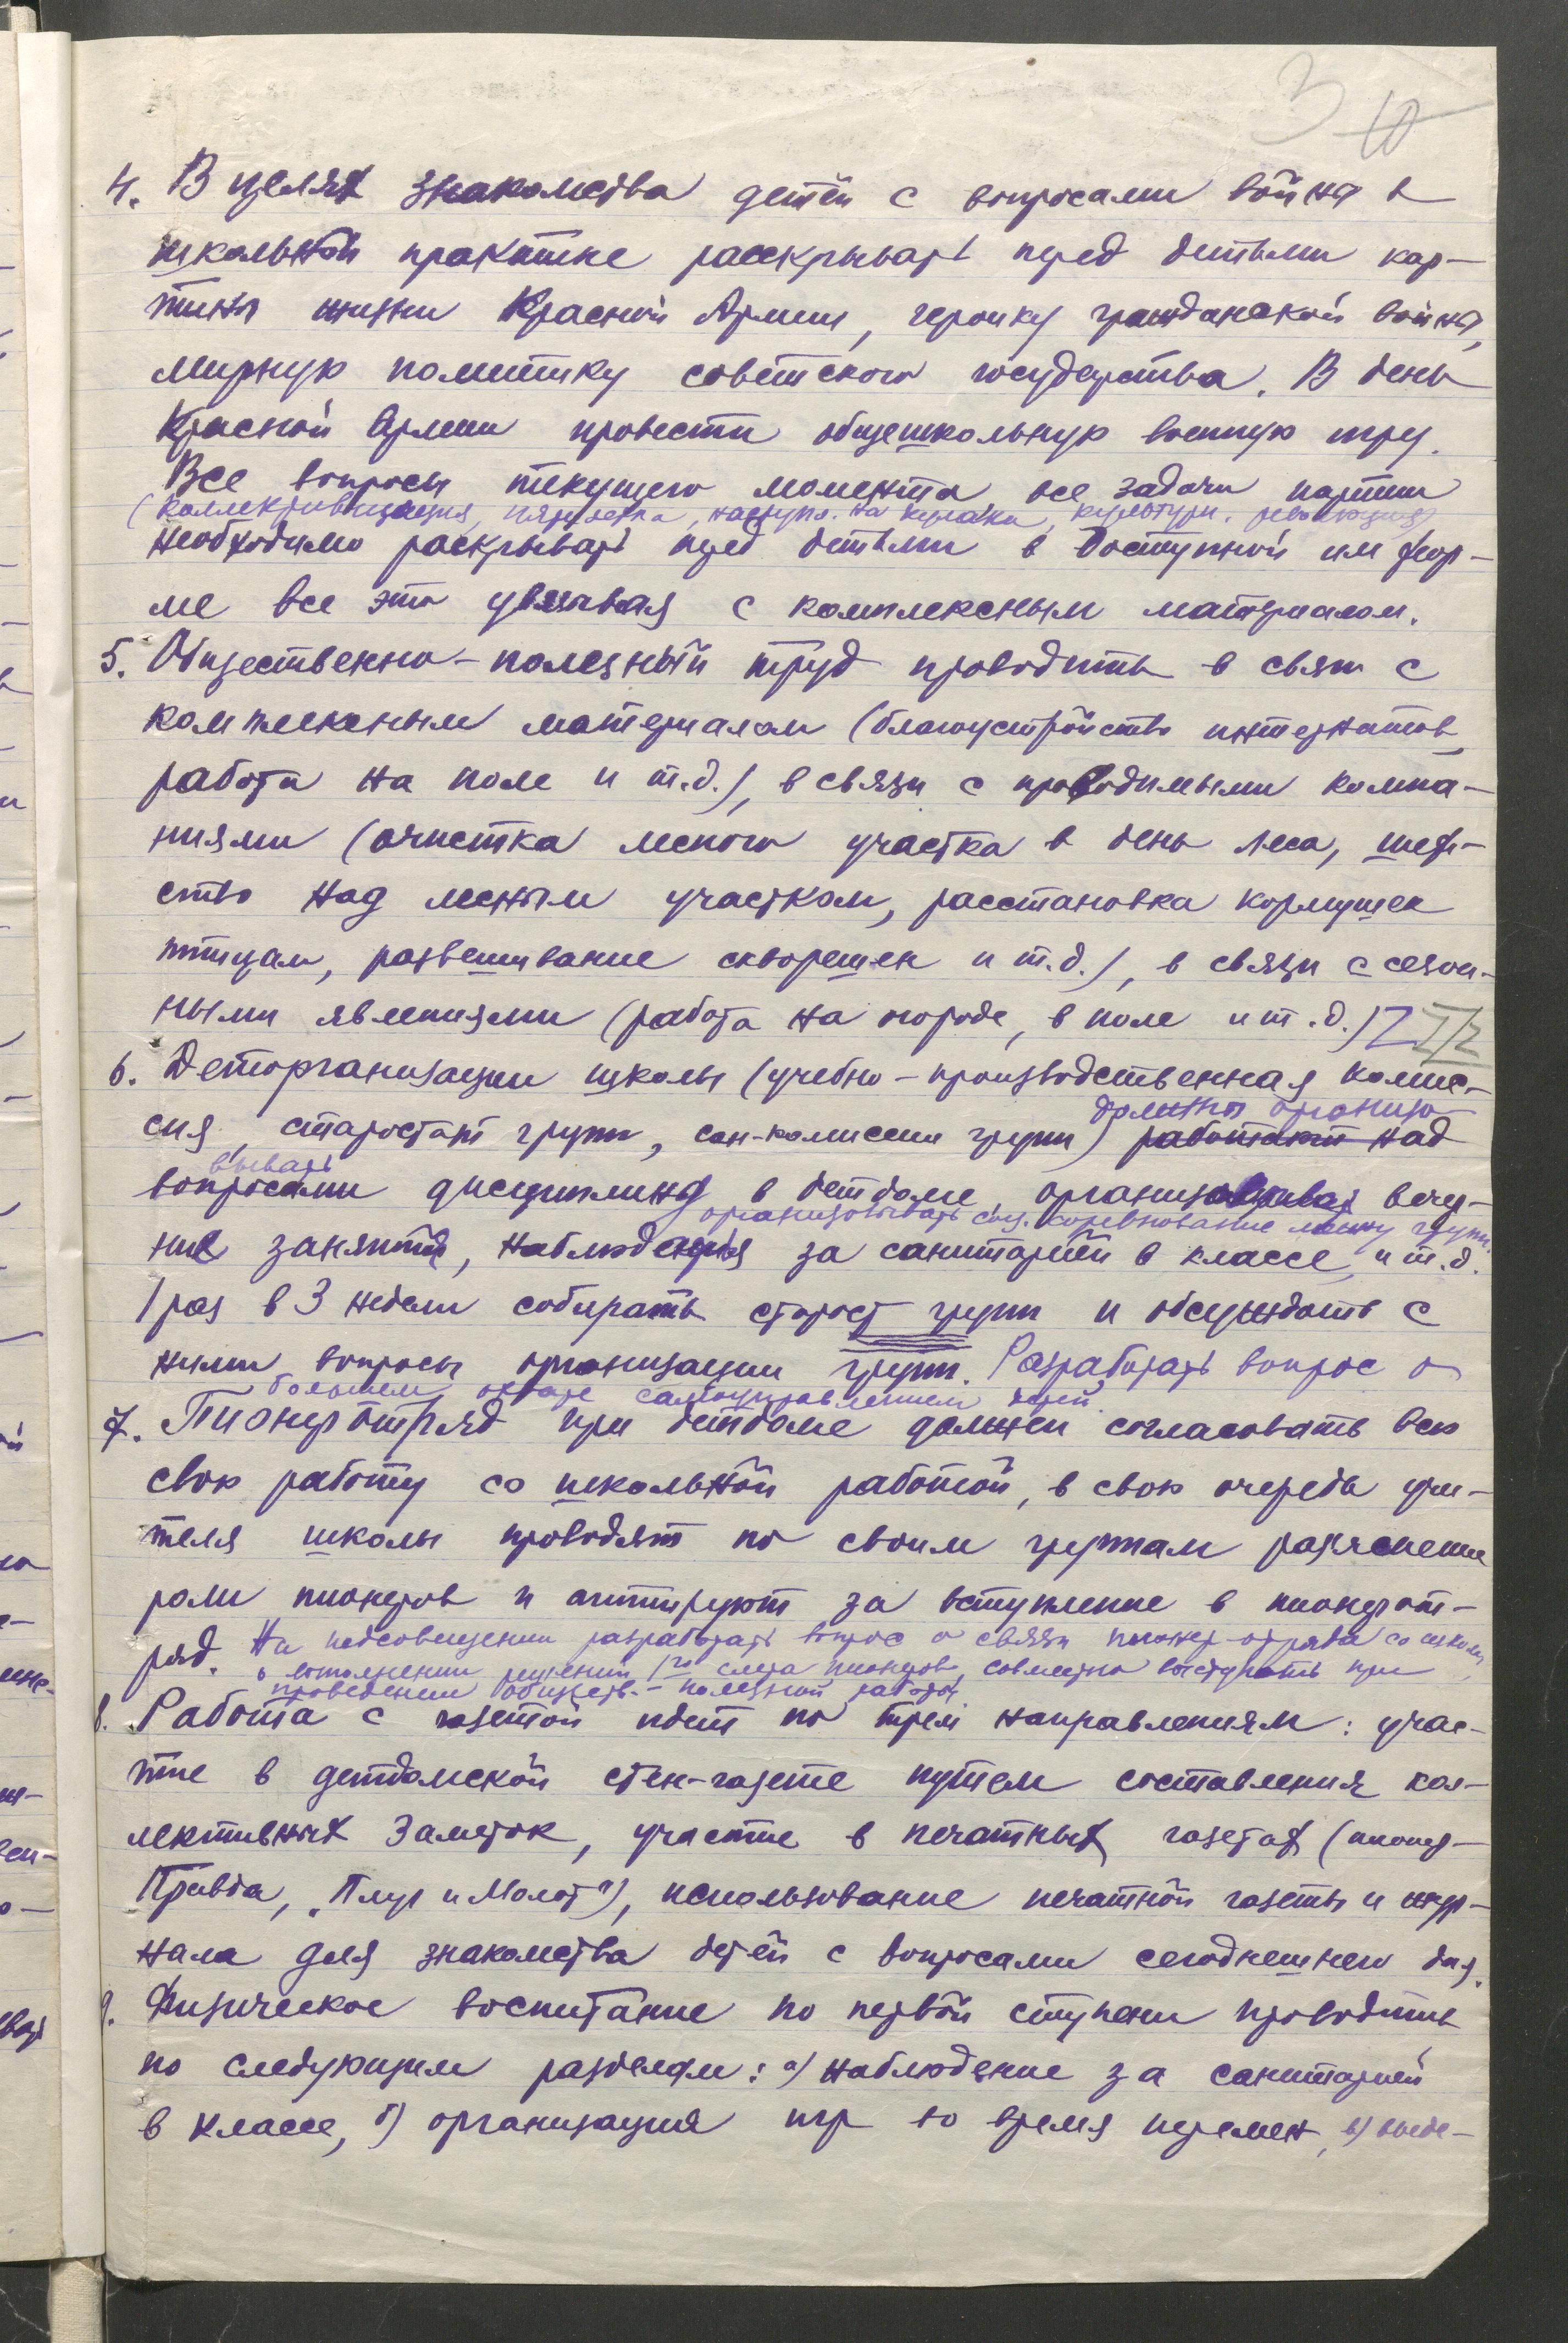 3 10
4. В целях знакомства детей с вопросами войны в
школьной практике расскрывать перед детьми кар-
тины жизни Красной Армии, героику гражданской войны,
мирную политику советского государства. В день
Красной Армии провести общешкольную военную игру.
Все вопросы текущего момента, все задачи партии
(коллективизация, пятилетка, наступл. на кулака, культурн. революция)
необходимо раскрывать перед детьми в доступной им фор-
ме все это увязывая с комплексным материалом.
5. Общественно-полезный труд проводить в связи с
комплексным материалом (благоустройство интернатов,
работа на поле и т.д.), в связи с проводимыми компа-
ниями (очистка лесного участка в день леса, шеф-
ство над лесным участком, расстановка кормушек
птицам, развешивание скворешен и т.д.), в связи с сезон-
ными явлениями (работа на огороде, в поле и т.д.)
6. Деторганизации школы (учебно-производственная комис-
должны организо-
сия, старостат групп, сан-комиссии групп) работают над
вывать
вопросами дисциплины в детдоме, организовывать вечер-
организовывать соц. соревнование между групп.
ние занятия, наблюдения за санитарией в классе, и т.д.
1 раз в 3 недели собирать старост групп и обсуждать с
ними вопросы организации групп. Разработать вопрос о
большем охвате самоуправлением детей.
7. Пионеротряд при детдоме должен согласовать всю
свою работу со школьной работой, в свою очередь учи-
теля школы проводят по своим группам разяснение
роли пионеров и агитируют за вступление в пионерот-
ряд. На педсовещении разработать вопрос о связи пионер-отряда со школой,
о выполнении решений 1го слета пионеров, совместно выступать при
проведении обществ.-полезной работы.
8. Работа с газетой идет по трем направлениям: учас-
тие в детдомской стен-газете путем составления кол-
лективных заметок, участие в печатных газетах (пионер-
Правда, „Плуг и Молот"), использование печатной газеты и жур-
нала для знакомства детей с вопросами сегоднешнего дня.
9. Физическое воспитание по первой ступени проводить
по следующим разделам: а) наблюдение за санитарией
в классе, б) организация игр во время перемен, в) введе-